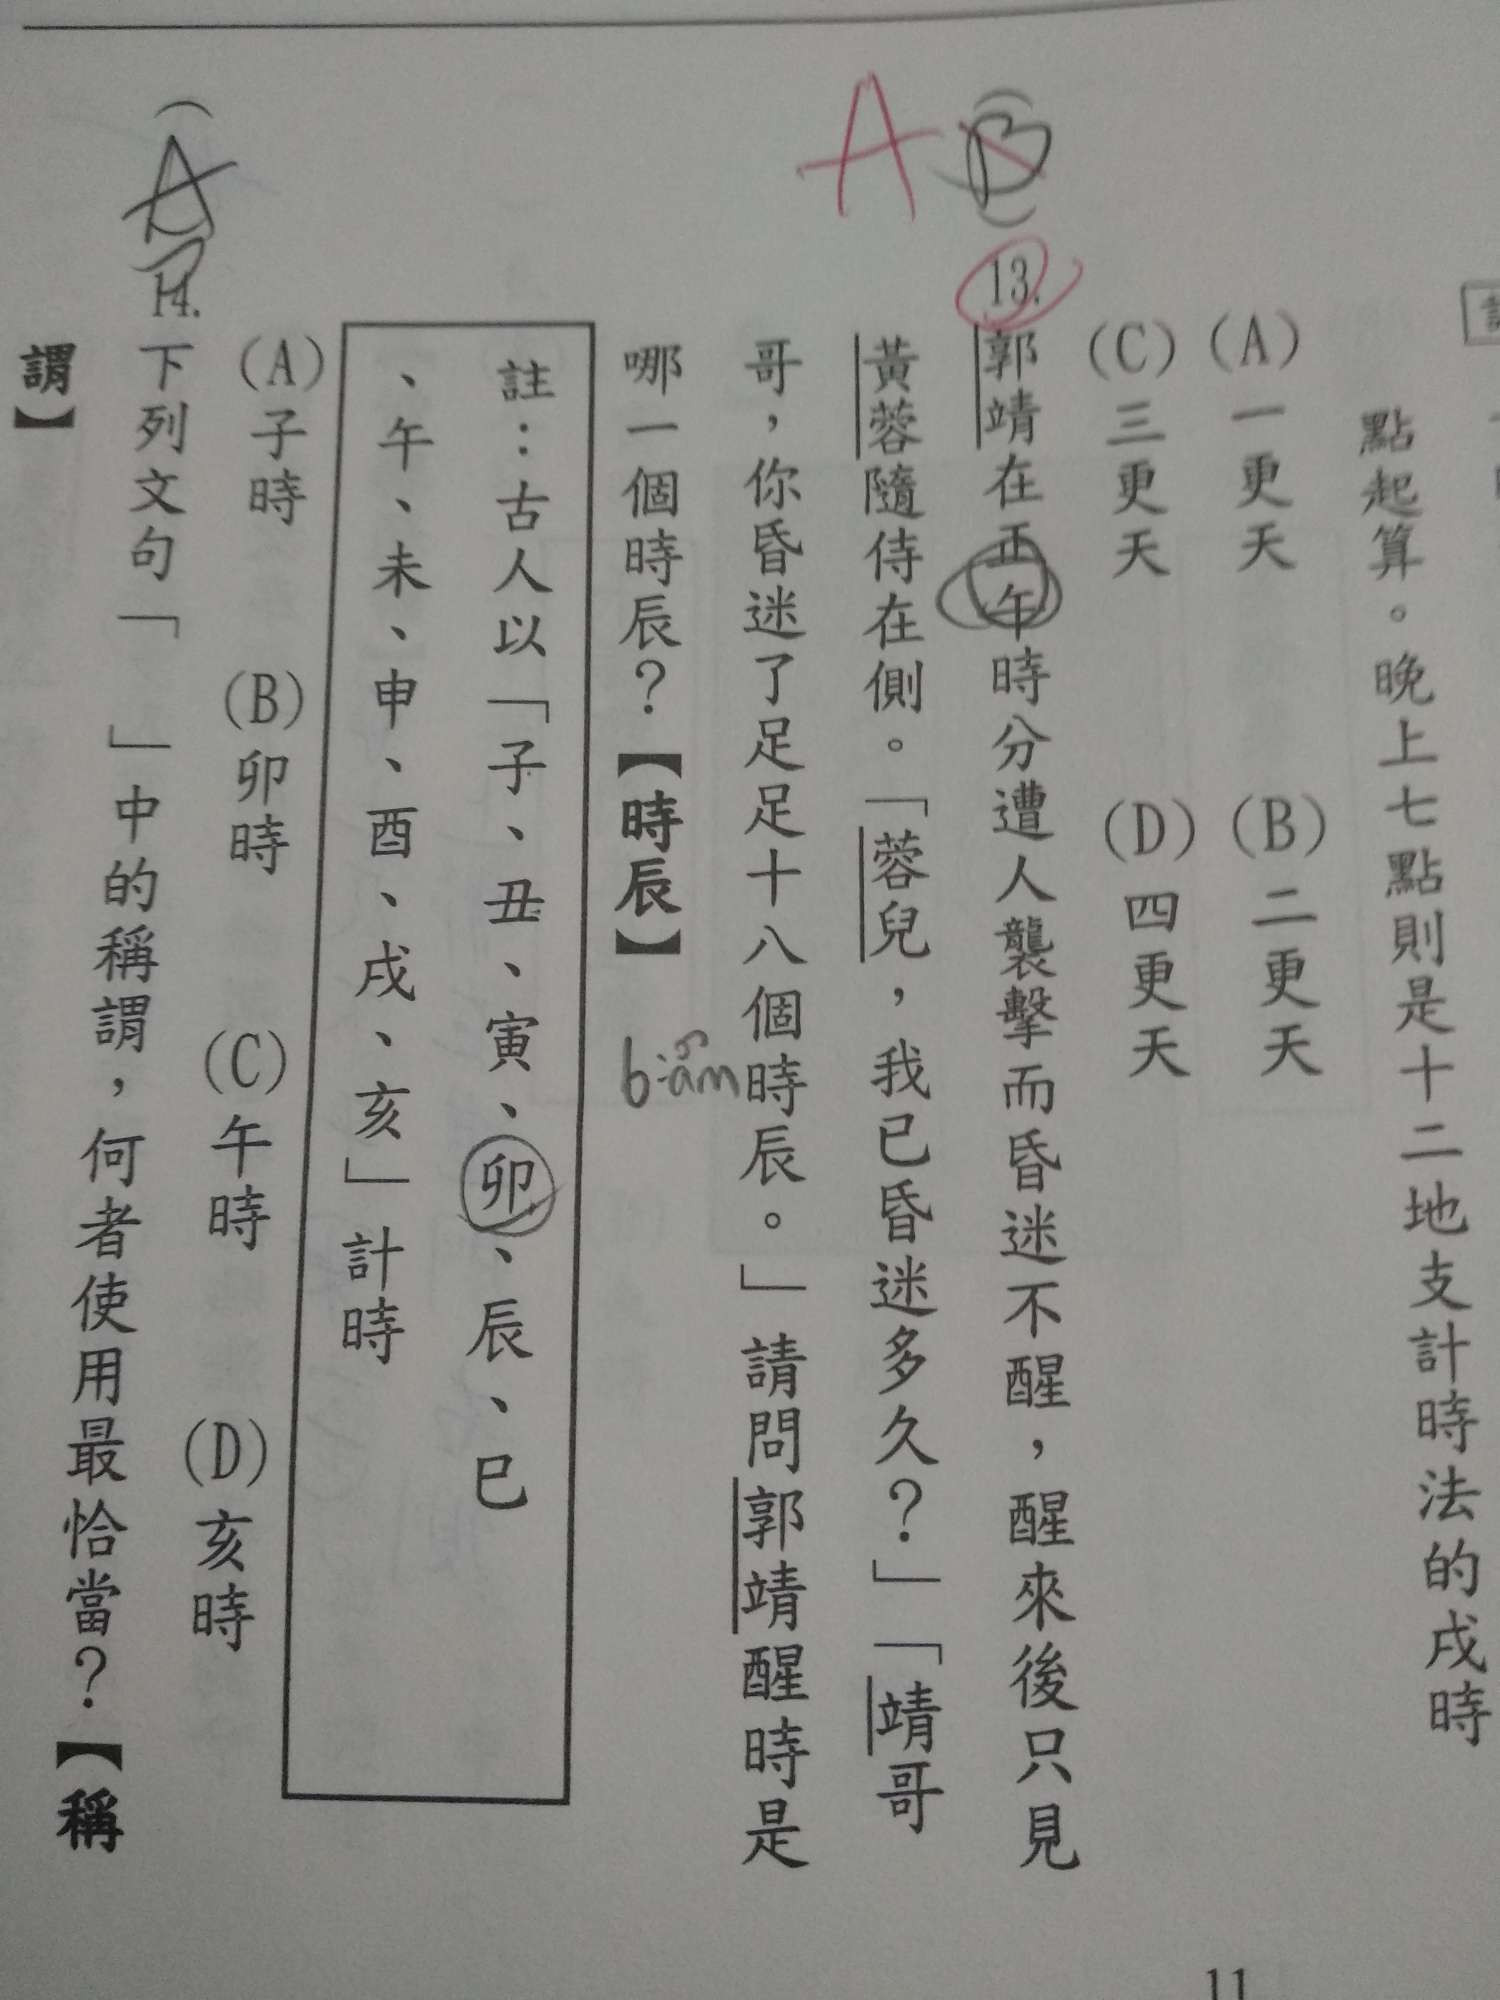 點起算。晚上七點則是十二地支計時法的戌時
(A)一更天 (B)二更天
(C)三更天 (D)四更天
A
(B)13.郭靖在正午時分遭人襲擊而昏迷不醒，醒來後只見
黃蓉隨侍在側。「蓉兒，我已昏迷多久？」「靖哥
哥，你昏迷了足足十八個時辰。」請問郭靖醒時是
哪一個時辰？【時辰】
註：古人以「子、丑、寅、卯、辰、巳
、午、未、申、酉、戌、亥」計時
(A)子時 (B)卯時 (C)午時 (D)亥時
(A)14.下列文句「 」中的稱謂，何者使用最恰當？【稱
謂】
11